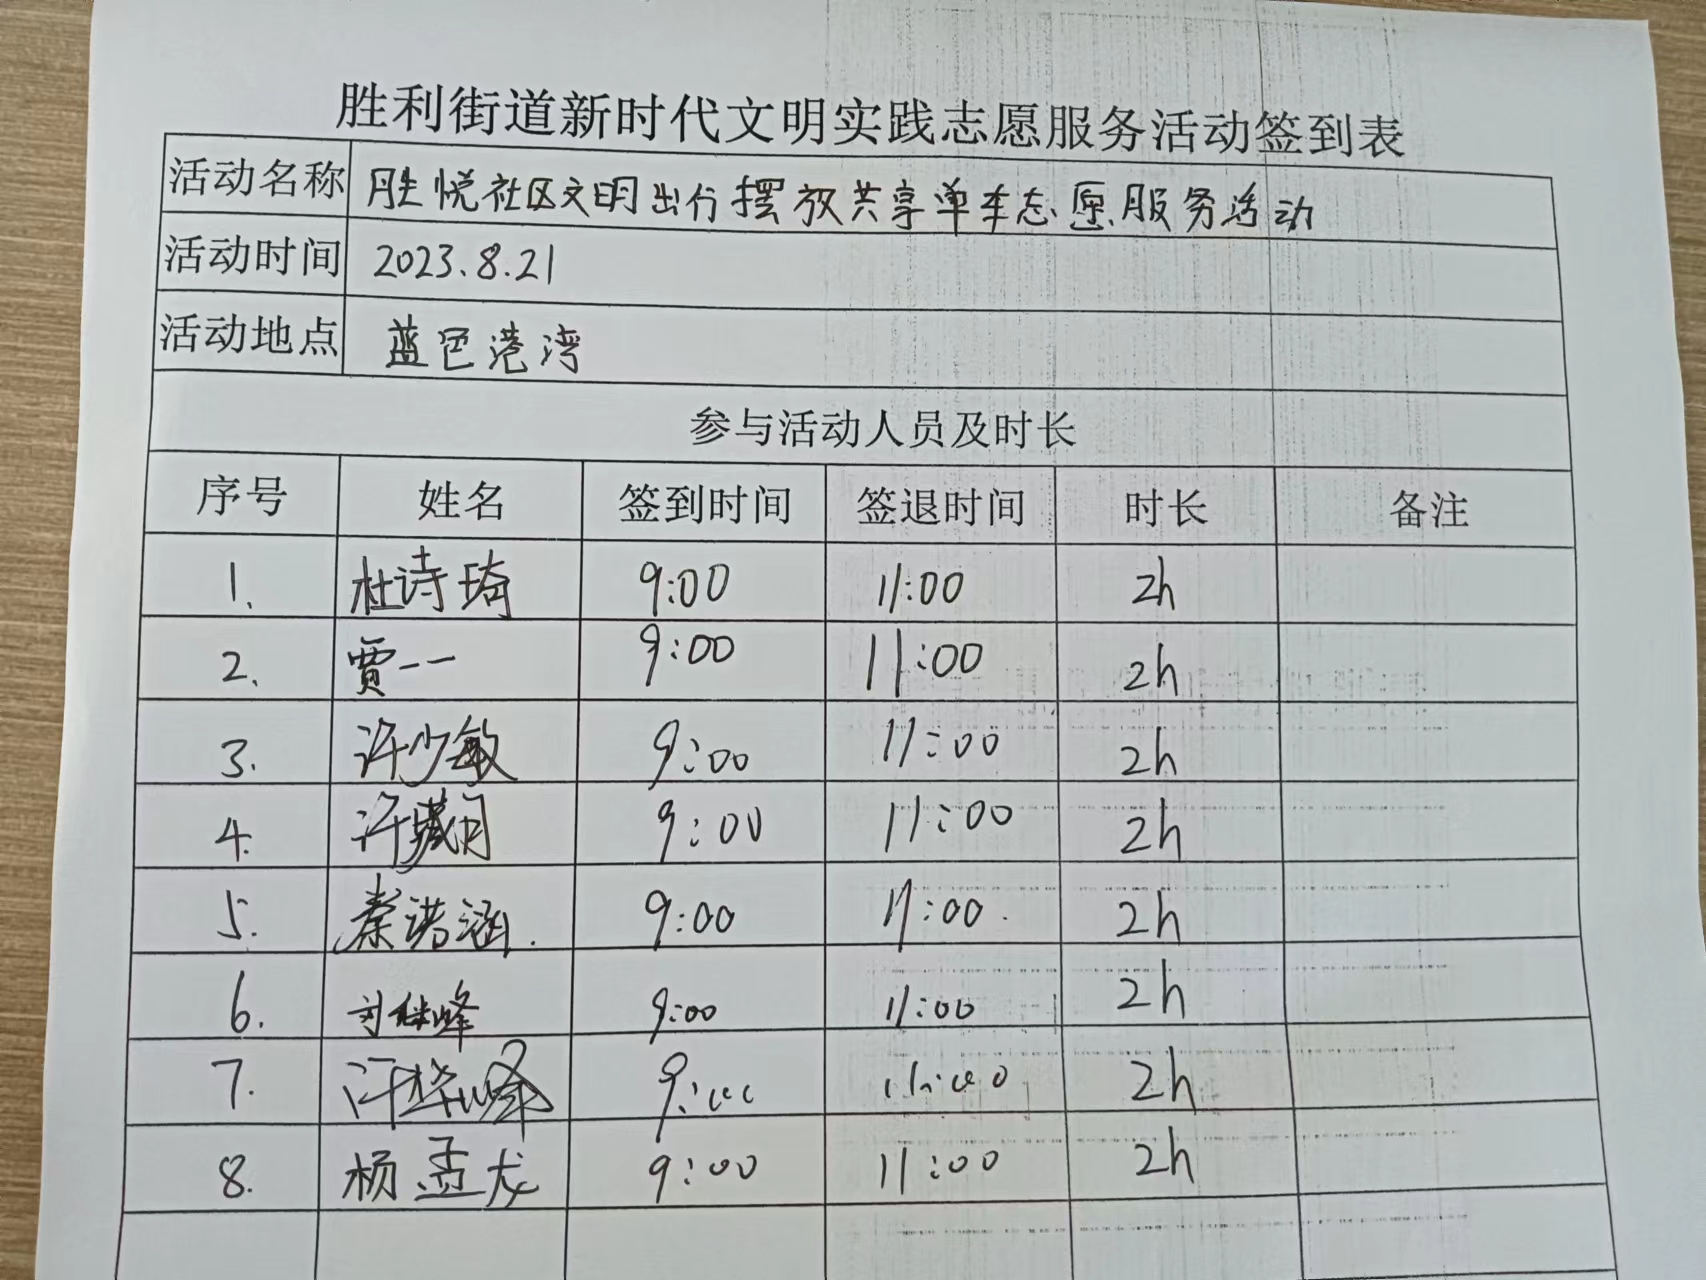 胜利街道新时代文明实践志愿服务活动签到表
活动名称 胜悦社区文明出行摆放共享单车志愿服务活动
活动时间 2023.8.21
活动地点 蓝色港湾
参与活动人员及时长
序号 姓名 签到时间 签退时间 时长 备注
1. 杜诗琦 9:00 11:00 2h
2. 贾一一 9:00 11:00 2h
3. 许少敏 9:00 11:00 2h
4. 许 9:00 11:00 2h
5. 秦诺涵. 9:00 11:00. 2h
6. 刘 峰 9:00 11:00 2h
7. 峰 9:00 11:00 2h
8. 杨孟龙 9:00 11:00 2h